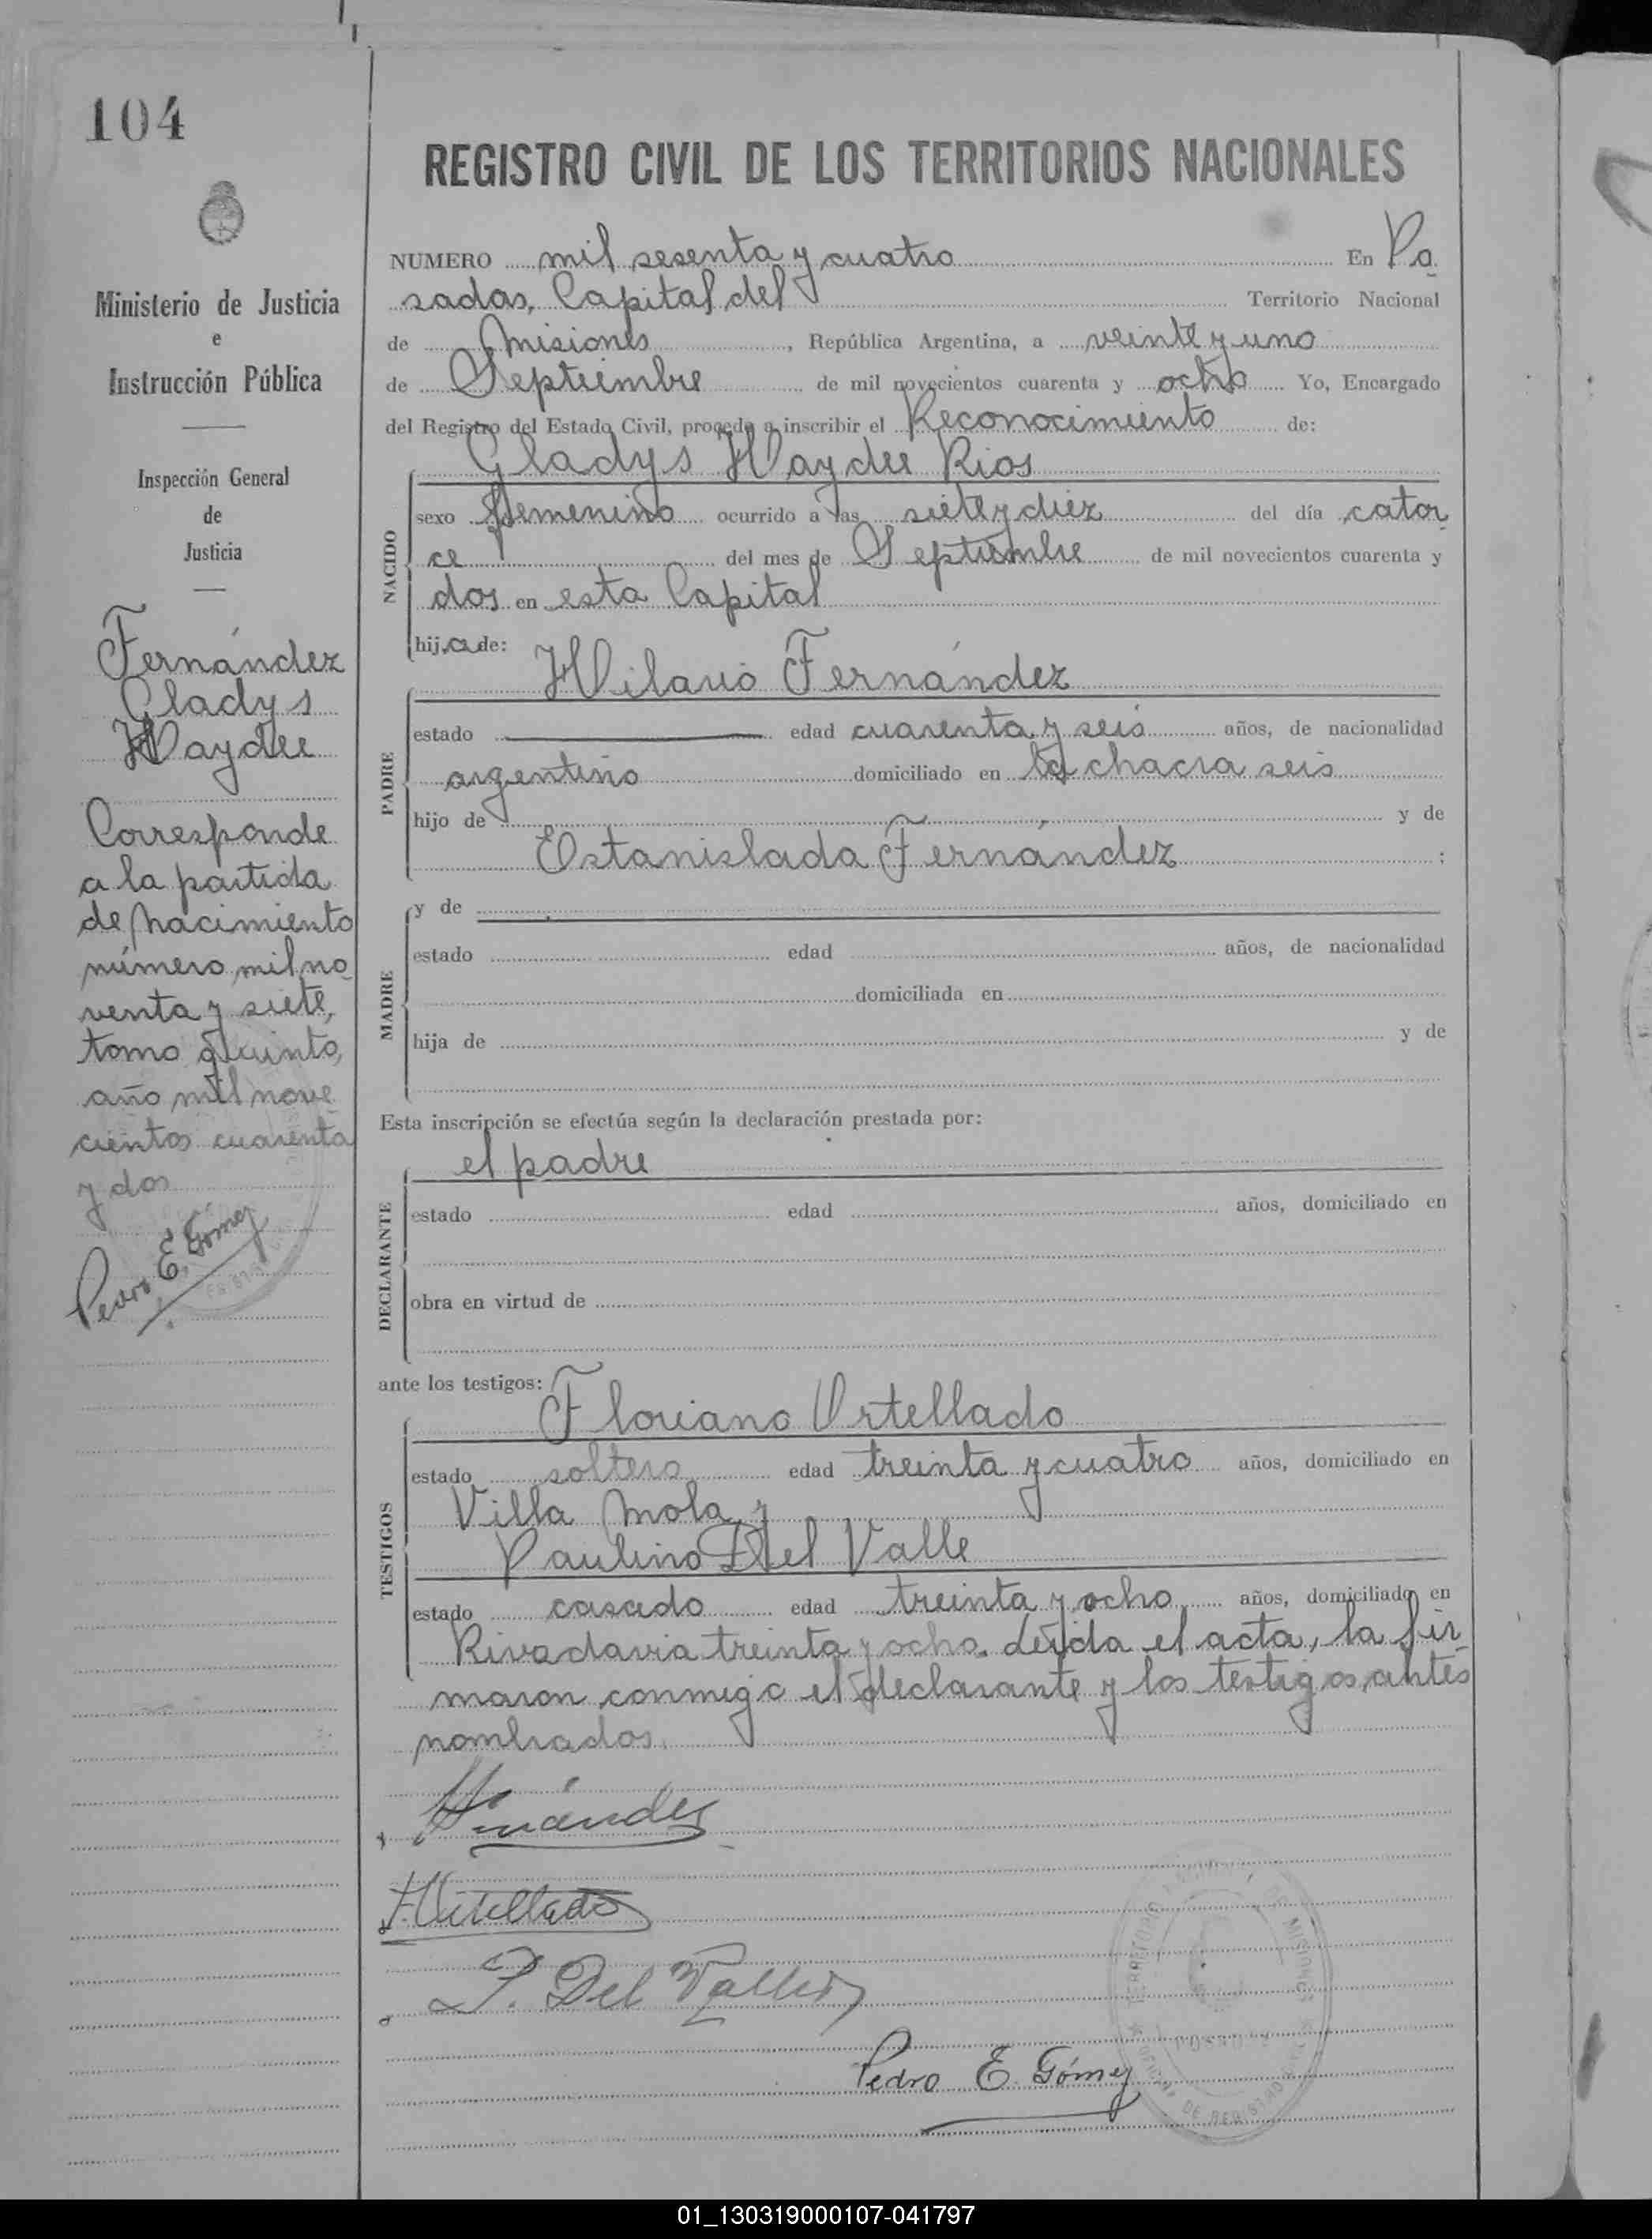 104
Ministerio de Justicia
e
Instrucción Pública
Inspección General
de
Justicia
Fernández
Gladys
Haydee
Corresponde
a la partida
de nacimiento
número mil no
venta y siete,
tomo quinto,
año mil nove
cientos cuarenta
y dos
Pedro E. Gómez
REGISTRO CIVIL DE LOS TERRITORIOS NACIONALES
NUMERO mil sesenta y cuatro En Po
sadas, Capital del Territorio Nacional
de Misiones, República Argentina, a veinte y uno
de Septiembre de mil novecientos cuarenta y ocho Yo, Encargado
del Registro del Estado Civil, procedo a inscribir el Reconocimiento de:
Gladys Haydee Rios
NACIDO
sexo femenino ocurrido a las siete y diez del día cator
ce del mes de Septiembre de mil novecientos cuarenta y
dos en esta Capital
hija de:
Hilario Fernández
PADRE
estado edad cuarenta y seis años, de nacionalidad
argentino domiciliado en la chacra seis
hijo de y de
Estanislada Fernández :
MADRE
y de
estado edad años, de nacionalidad
domiciliada en
hija de y de
Esta inscripción se efectúa según la declaración prestada por:
el padre
DECLARANTE
estado edad años, domiciliado en
obra en virtud de
ante los testigos:
Floriano Ortellado
TESTIGOS
estado soltero edad treinta y cuatro años, domiciliado en
Villa Mola y
Paulino Del Valle
estado casado edad treinta y ocho años, domiciliado en
Rivadavia treinta y ocho. Leída el acta, la fir
maron conmigo el declarante y los testigos antes
nombrados.
F. Ortellado
P. Del Valle
Pedro E. Gómez
TERRITORIO MISIONES
POSADAS
OFICINA DE REGISTRO CIVIL
01_130319000107-041797